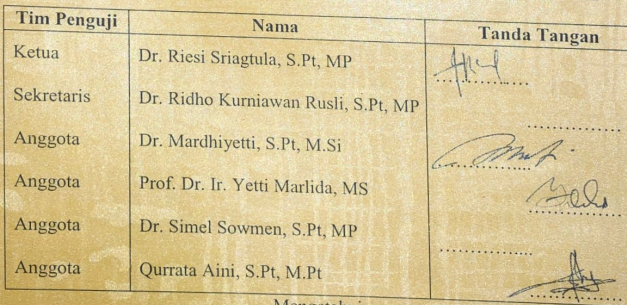 Tim Penguji Nama Tanda Tangan
Ketua Dr. Riesi Sriagtula, S.Pt, MP
Sekretaris Dr. Ridho Kurniawan Rusli, S.Pt, MP
Anggota Dr. Mardhiyetti, S.Pt, M.Si
Anggota Prof. Dr. Ir. Yetti Marlida, MS
Anggota Dr. Simel Sowmen, S.Pt, MP
Anggota Qurrata Aini, S.Pt, M.Pt